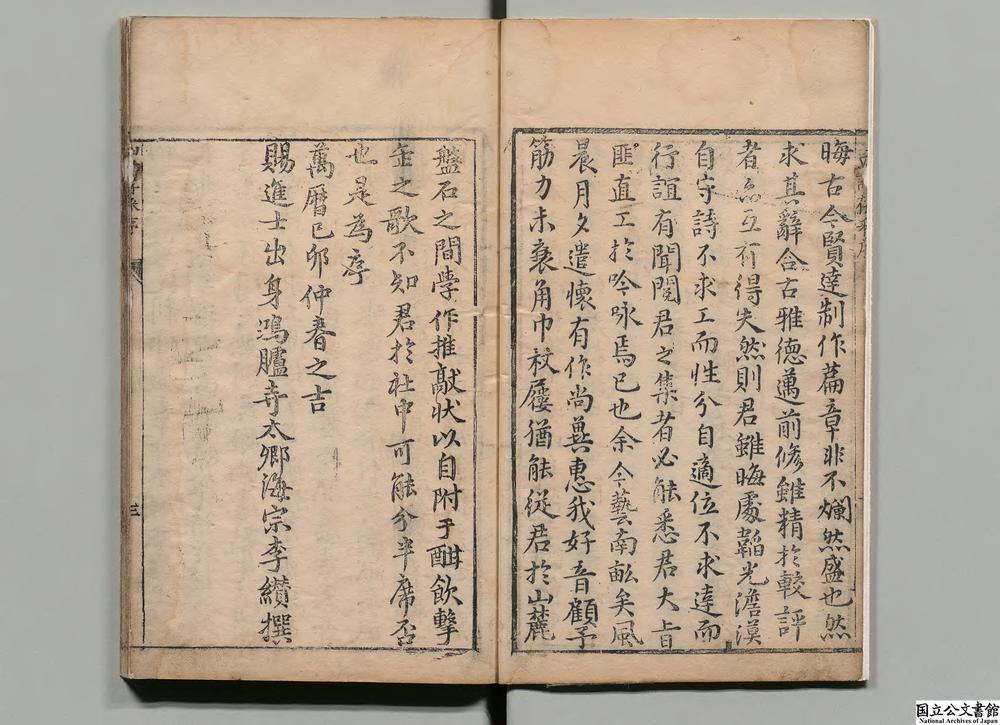 晦古今賢達制作篇章非不爛然盛也然
求其辭合古雅德邁前修雖精於較評
者亦互有得失然則君雖晦處韜光澹漠
自守詩不求工而性分自適位不求達而
行誼有聞閱君之集者必能悉君大旨
匪直工於吟咏焉已也余今藝南畝矣風
晨月夕遣懷有作尚冀惠我好音顧予
筋力未衰角巾衩屨猶能從君於山麓
盤石之間學作推敲状以自附于酣飲擊
缶之歌不知君於社中可能分半席否
也是為序
萬曆己卯仲春之吉
賜進士出身鴻臚寺太卿海宗李纘撰
三
国立公文書館
National Archives of Japan